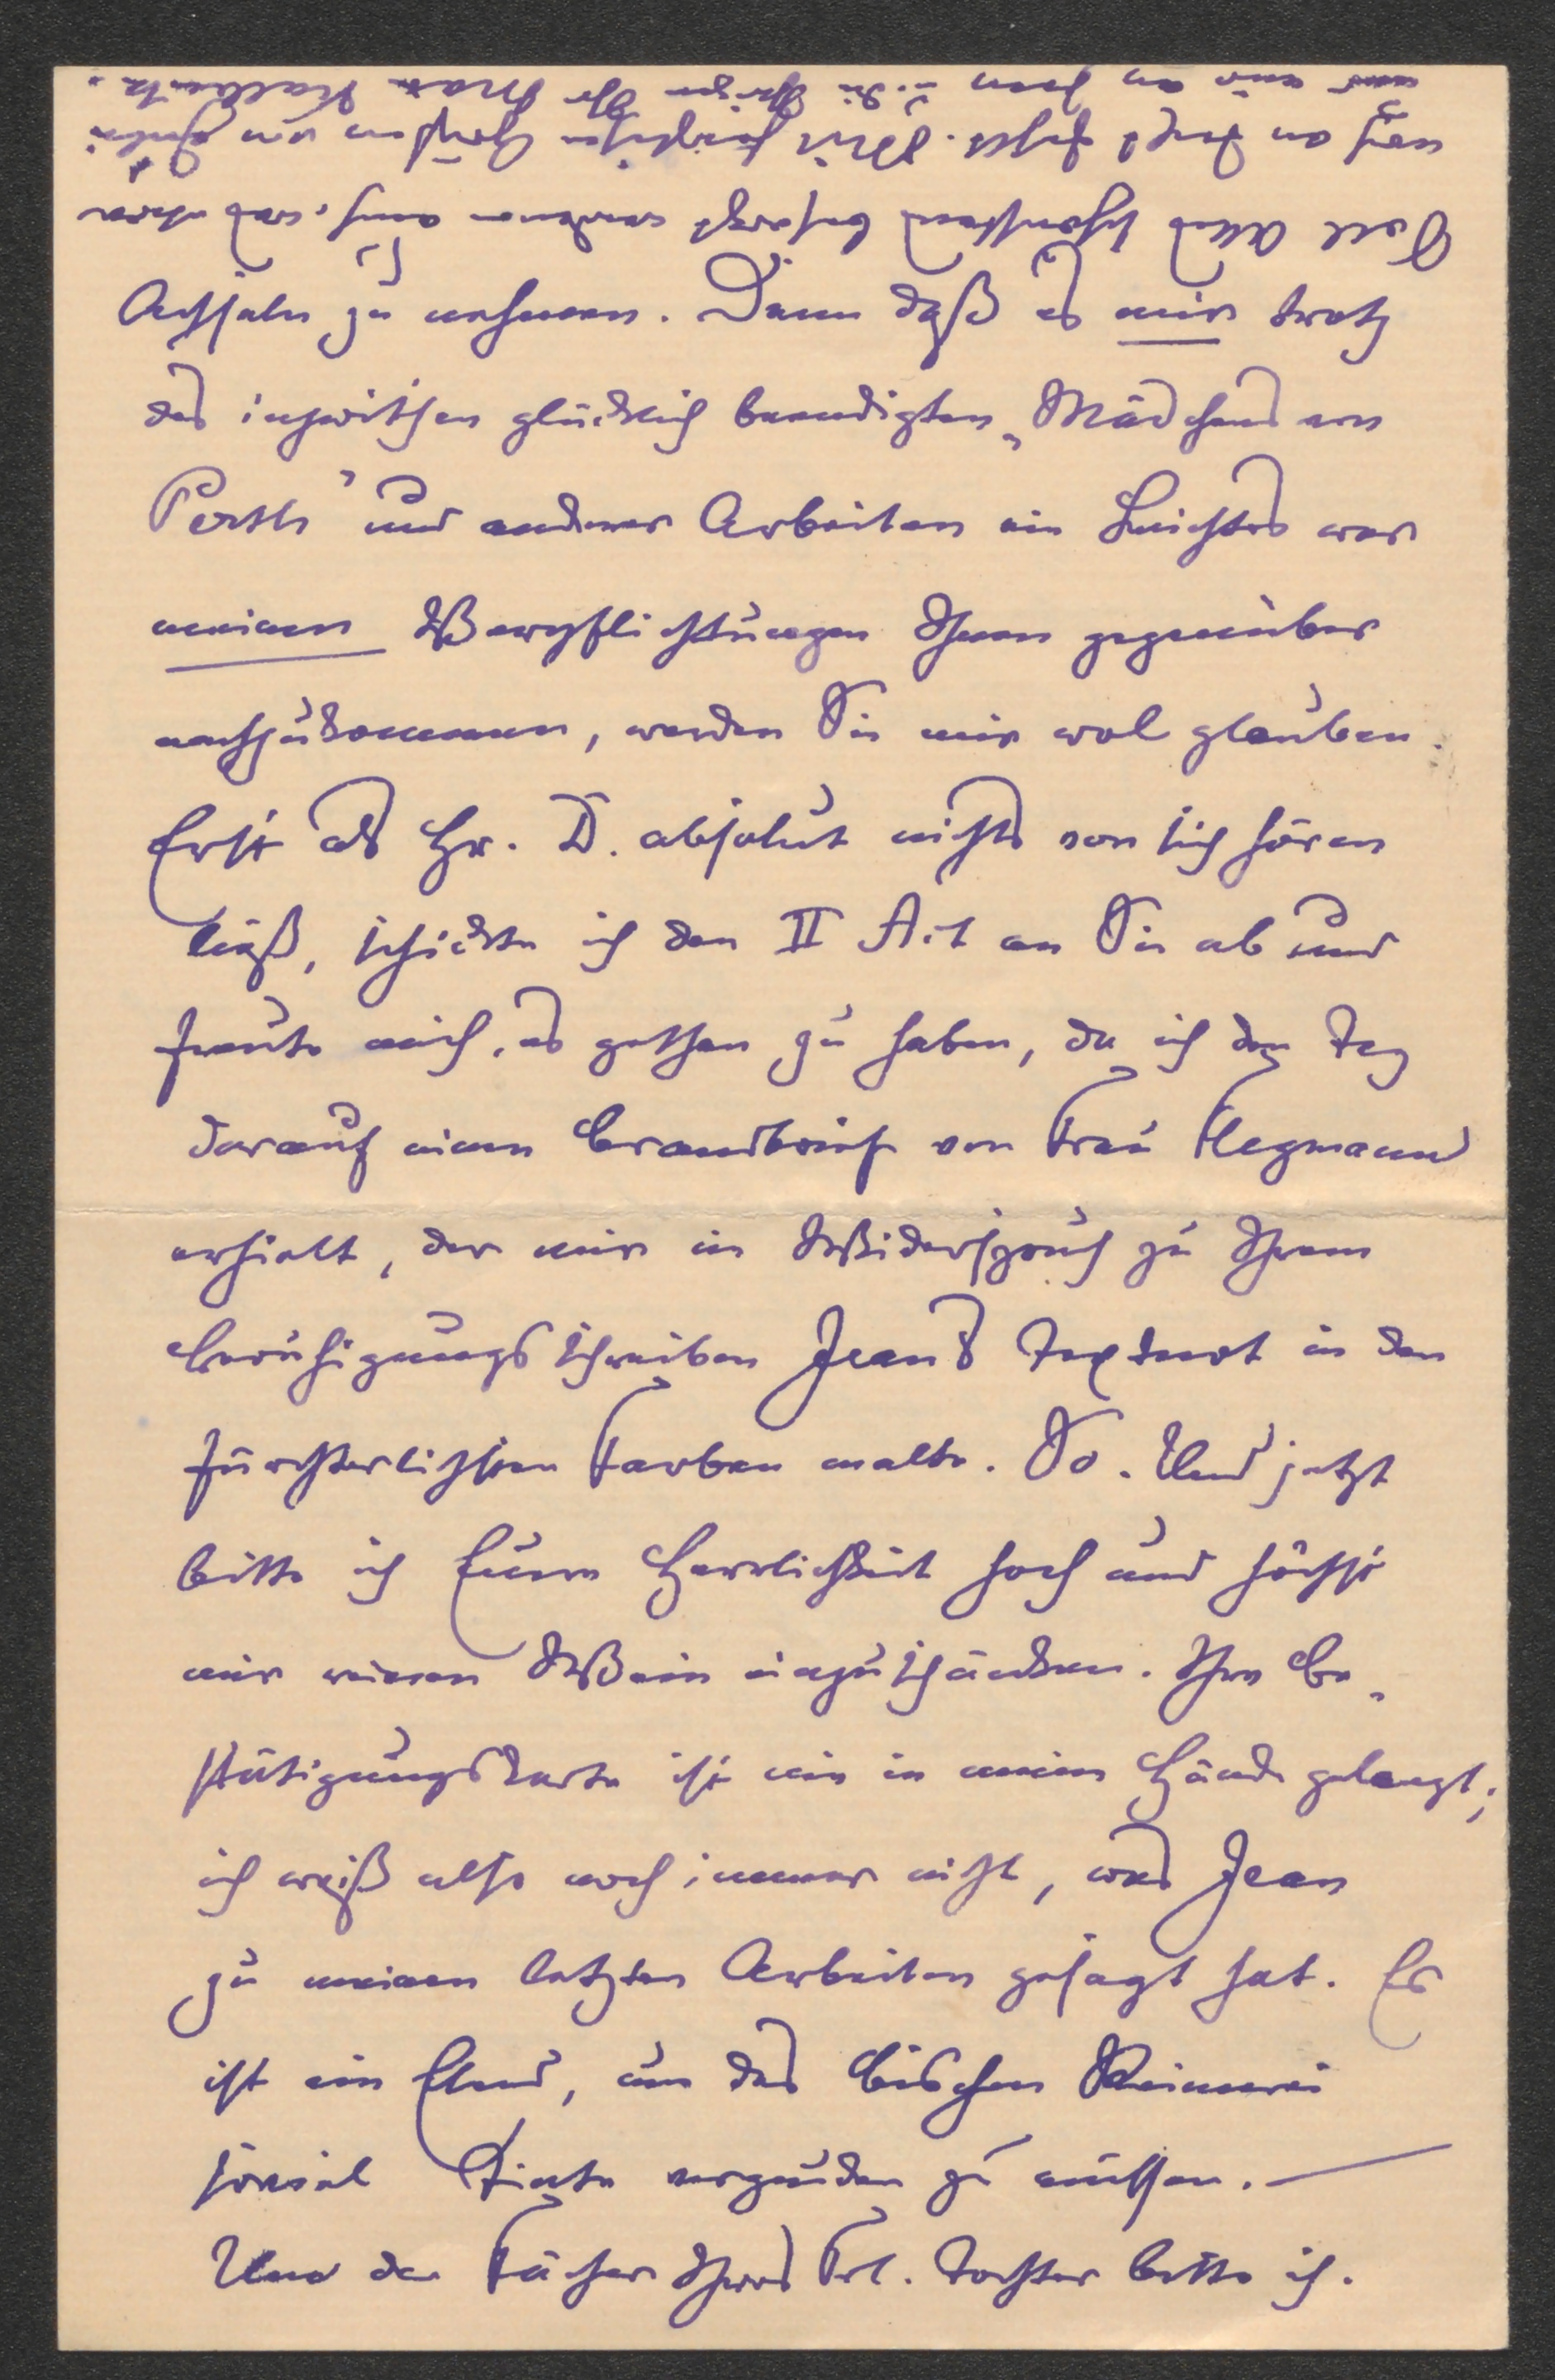 Achseln zu nehmen. Denn daß es mir trotz
des inzwischen glücklich beendigten „Mädchens von
Perth" und anderer Arbeiten ein Leichtes war
meinen Verpflichtungen Ihnen gegenüber
nachzukommen, werden Sie mir wol glauben.
Erst als Hr. D. absolut nichts von sich hören
ließ, schickte ich den II Act an Sie ab und
freute mich, es gethan zu haben, da ich den Tag
darauf einen Brandbrief von Frau Flegmann
erhielt, der mir im Widerspruch zu Ihrem
Beruhigungsschreiben Jean's Textnot in den
fürchterlichsten Farben malte. So. Und jetzt
bitte ich Eure Herrlichkeit hoch und höchst
mir reinen Wein einzuschänken. Ihre Be-
stätigungskarte ist nie in meine Hände gelangt;
ich weiß also noch immer nicht, was Jean
zu meinen letzten Arbeiten gesagt hat. Es
ist ein Elend, um das bischen Reimerei
soviel Tinte vergeuden zu müssen. —
Um den Fächer Ihres Frl. Tochter bitte ich.
Soll Alles schönstens besorgt werden auch, was etwa
noch an Text fehlt. Mit herzlichen Grüßen von
und mir an Jean u. die Ihrigen Ihr Max Kalbeck.